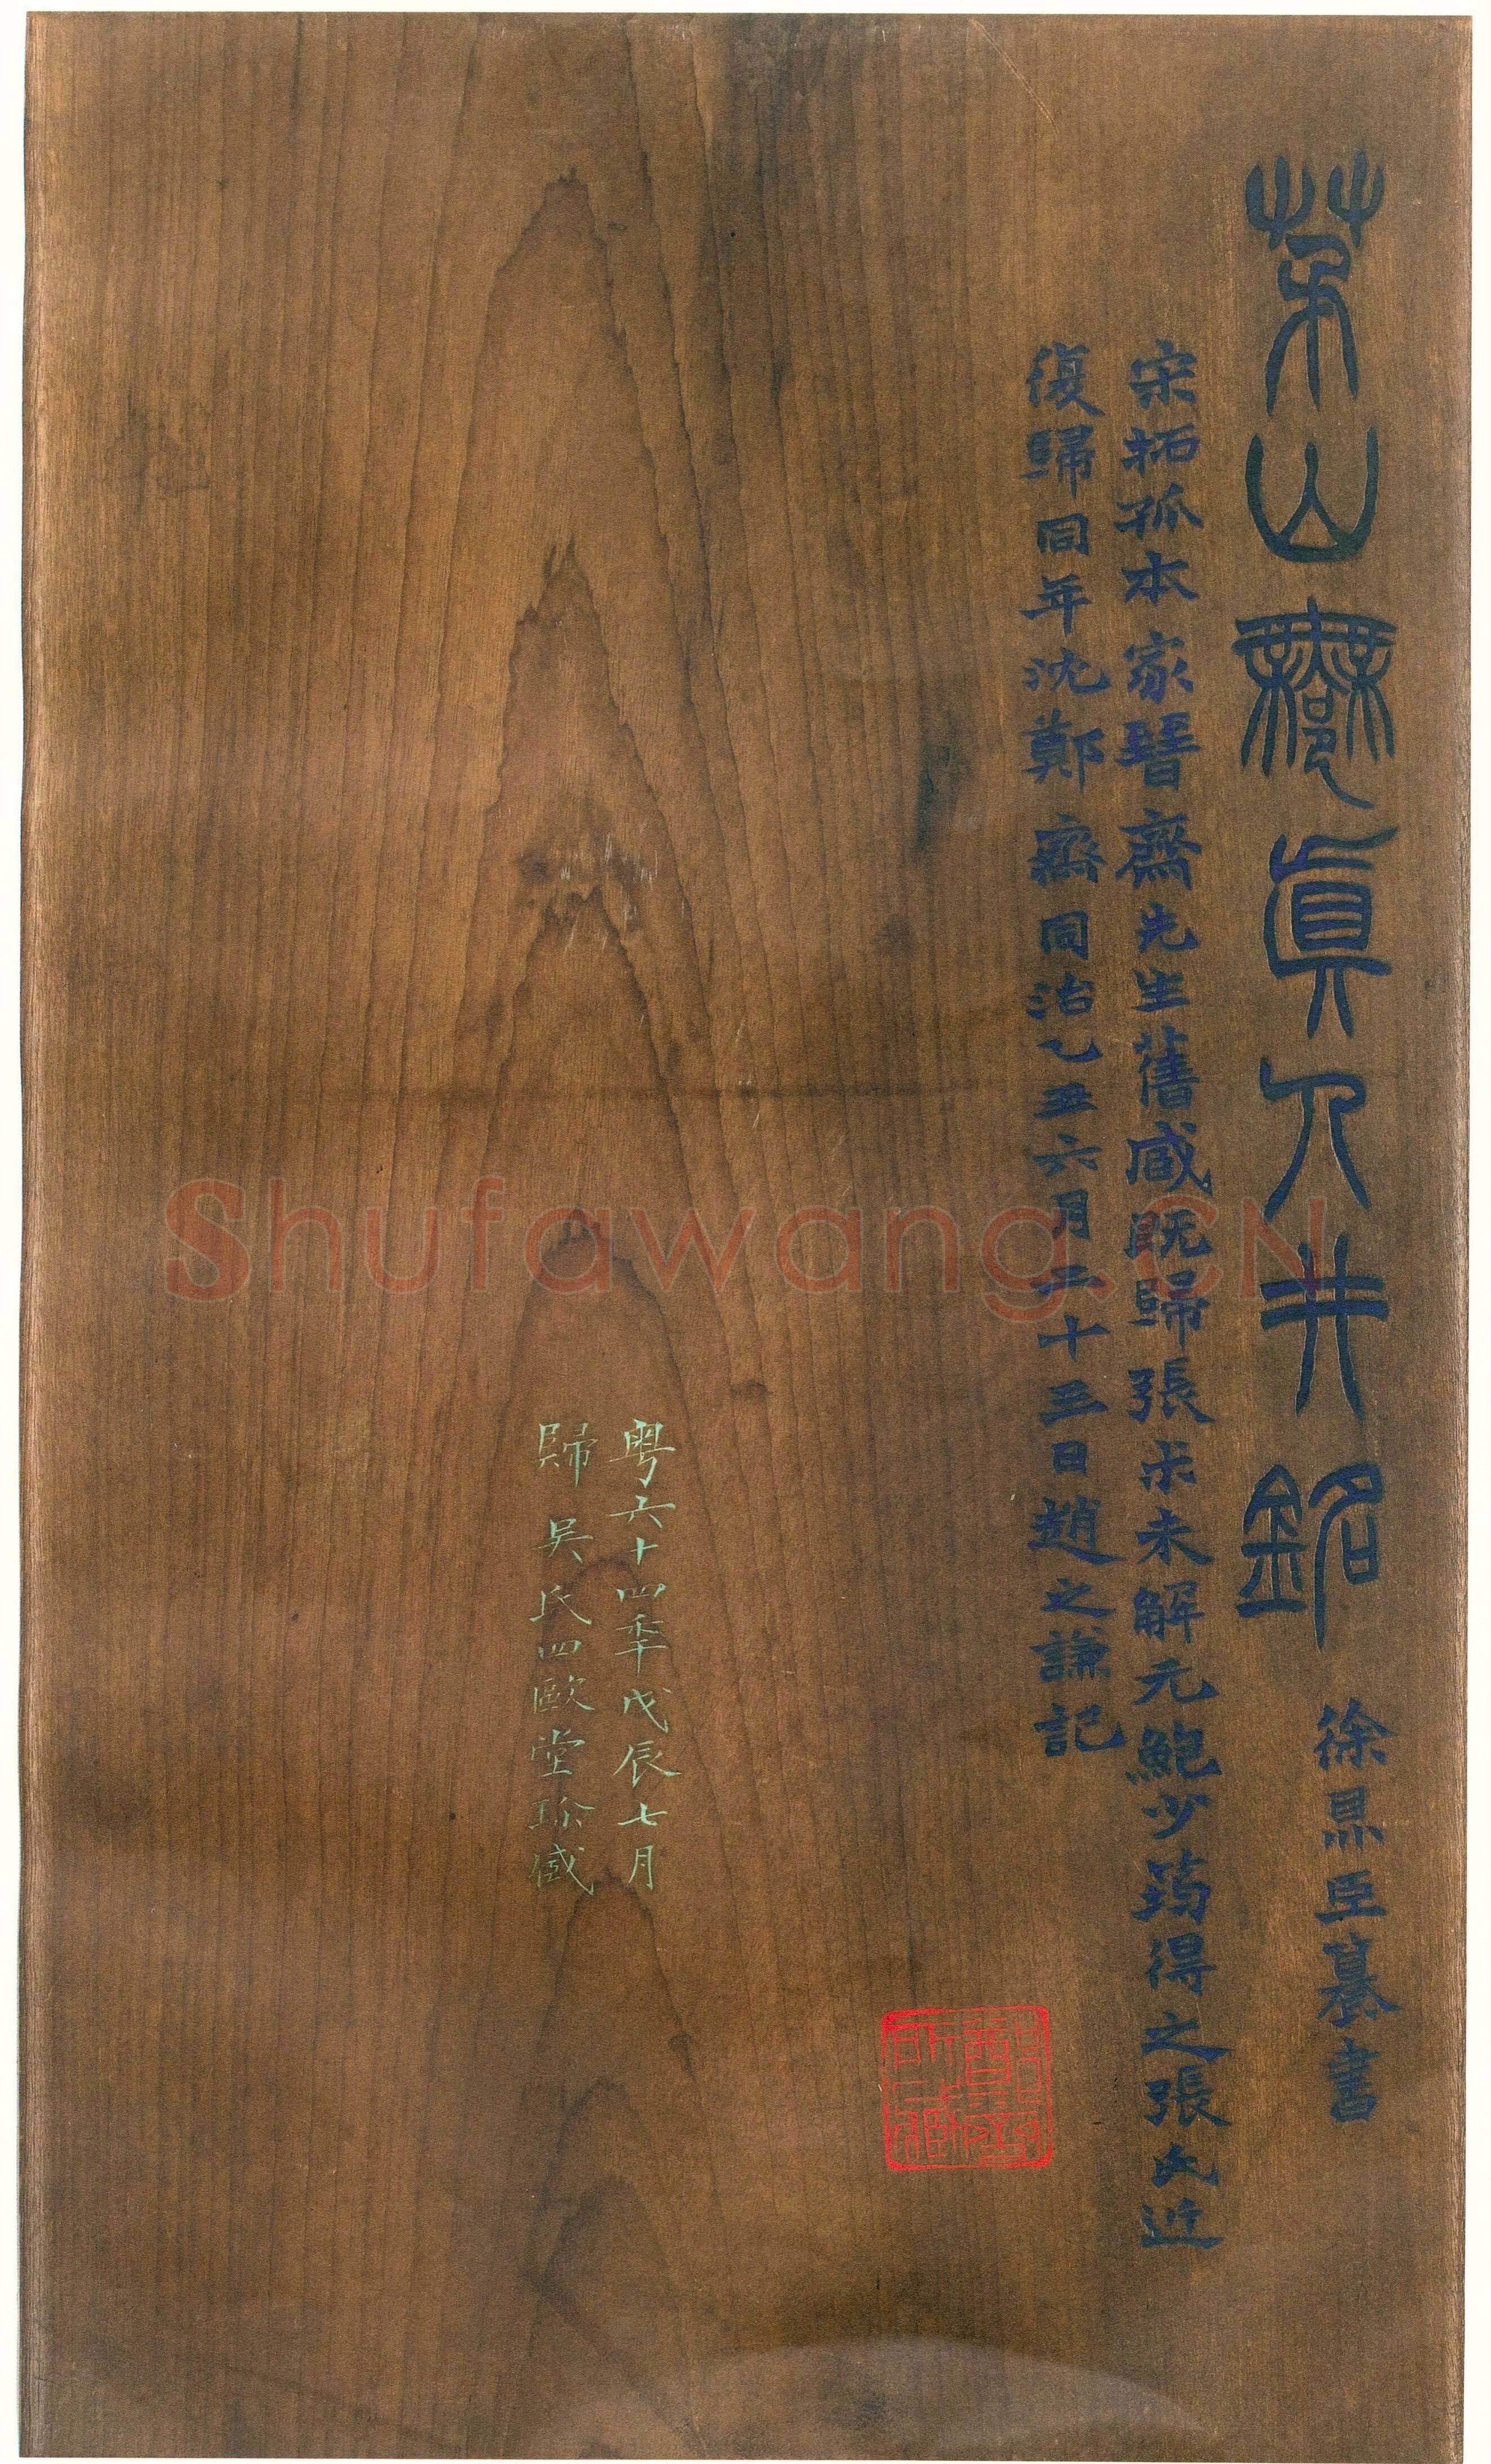 茅山鄦眞人井銘
徐鼎臣篆書
宋拓孤本家晉齋先生舊臧既歸張尗未解元鮑少筠得之張氏近
復歸同年沈鄭齋同治乙丑六月二十三日趙之謙記
粤六十四秊戊辰七月
歸吳氏四歐堂珍臧
Shufawang.CN